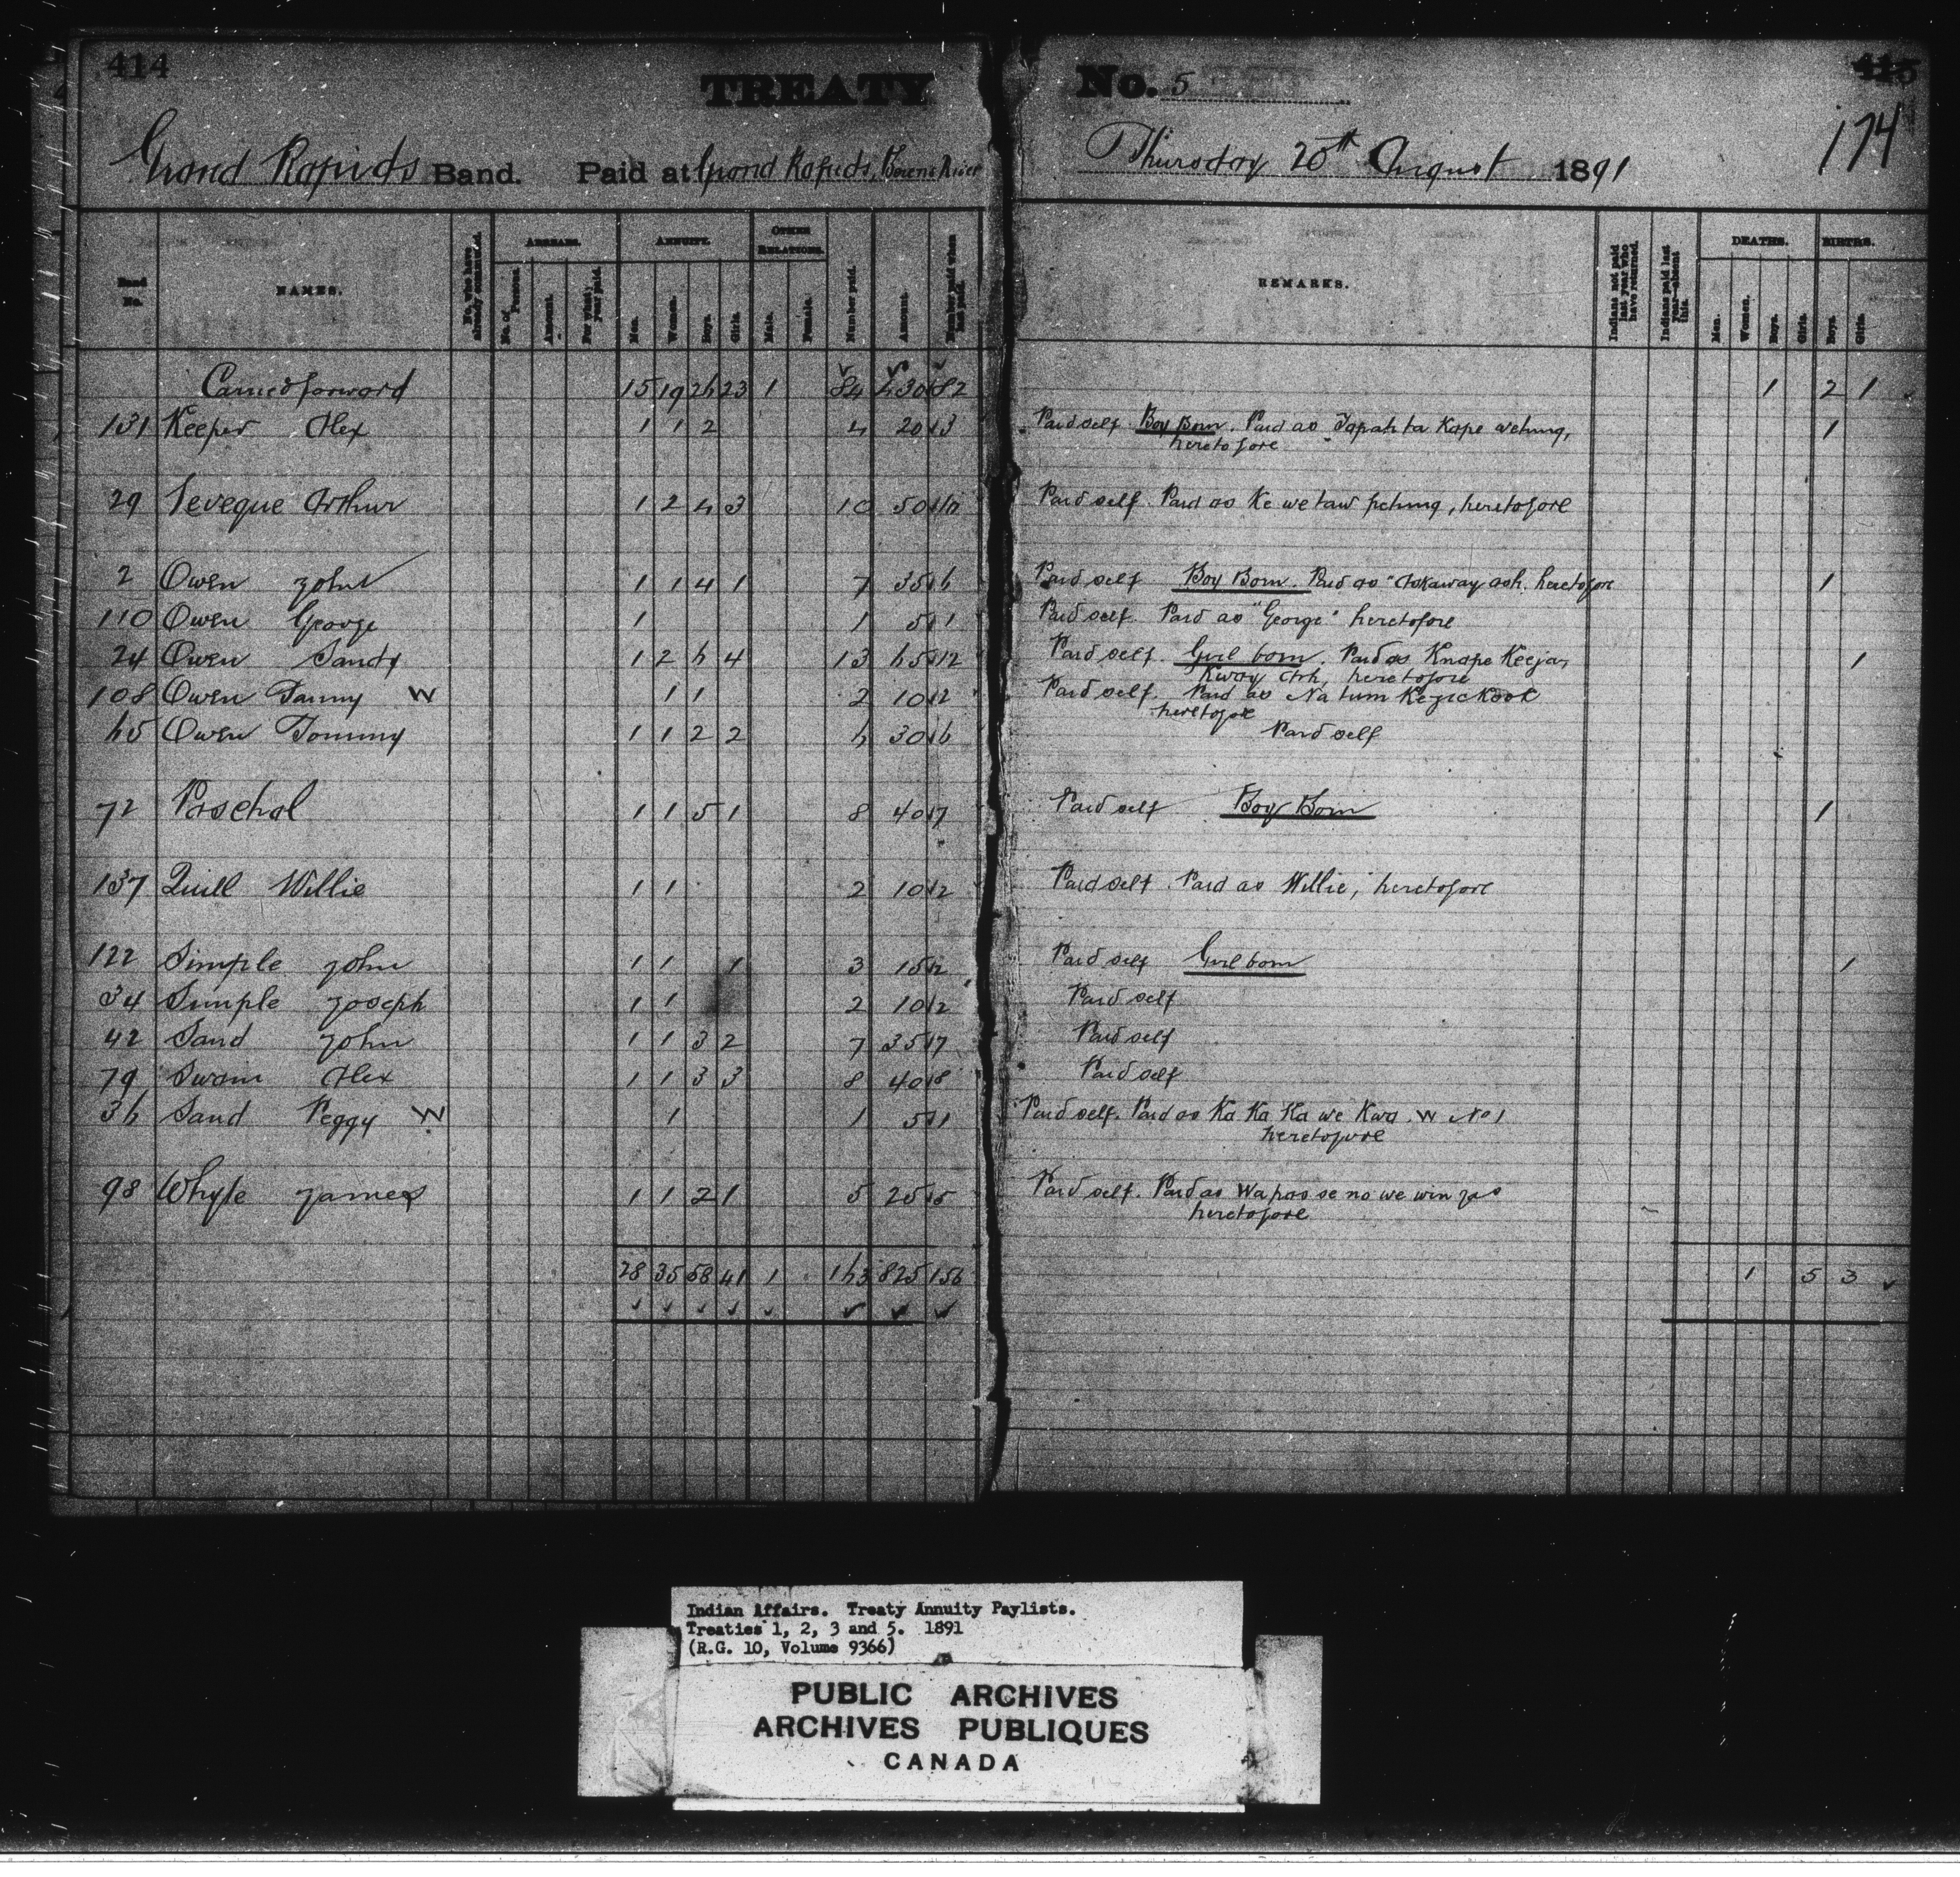 414
TREATY No. 5
415
174
Grand Rapids Band. Paid at Grand Rapids, Berens River Thursday 20th August 1891
Band No. NAMES. No. who have already commuted. ARREARS. No. of Persons. Amount. For what year paid. ANNUITY. Men. Women. Boys. Girls. OTHER RELATIONS. Male. Female. Number paid. Amount. Number paid when last paid. REMARKS. Indians not paid last year who have returned. Indians paid last year—absent this. DEATHS. Men. Women. Boys. Girls. BIRTHS. Boys. Girls.
Carried forward 15 19 26 23 1 84 430 82 1 2 1
131 Keeper Alex 1 1 2 4 20 3 Paid self. Boy Born. Paid as Tapahta Kape wetung, 1
heretofore
29 Leveque Arthur 1 2 4 3 10 50 10 Paid self. Paid as Ke we taw petung, heretofore
2 Owen John 1 1 4 1 7 35 6 Paid self Boy Born. Paid as "Askaway ash. heretofore 1
110 Owen George 1 1 5 1 Paid self. Paid as "George" heretofore
24 Owen Sandy 1 2 6 4 13 65 12 Paid self. Girl born. Paid as Knape Keeja, 1
Kway Ash, heretofore
108 Owen Fanny W 1 1 2 10 2 Paid self. Paid as Na tum Kezickook
heretofore
65 Owen Tommy 1 1 2 2 6 30 6 Paid self
72 Paschal 1 1 5 1 8 40 7 Paid self Boy Born 1
137 Quill Willie 1 1 2 10 2 Paid self. Paid as Willie, heretofore
122 Simple John 1 1 1 3 15 2 Paid self Girl born 1
34 Simple Joseph 1 1 2 10 2 Paid self
42 Sand John 1 1 3 2 7 35 7 Paid self
79 Swain Alex 1 1 3 3 8 40 8 Paid self
36 Sand Peggy W 1 1 5 1 Paid self. Paid as Ka Ka Ka we Kwa. W No 1
heretofore
98 Whyte James 1 1 2 1 5 25 5 Paid self. Paid as Wapas se no we win
heretofore
28 35 58 41 1 163 825 156 1 5 3
Indian Affairs. Treaty Annuity Paylists.
Treaties 1, 2, 3 and 5. 1891
(R.G. 10, Volume 9366)
PUBLIC ARCHIVES
ARCHIVES PUBLIQUES
CANADA